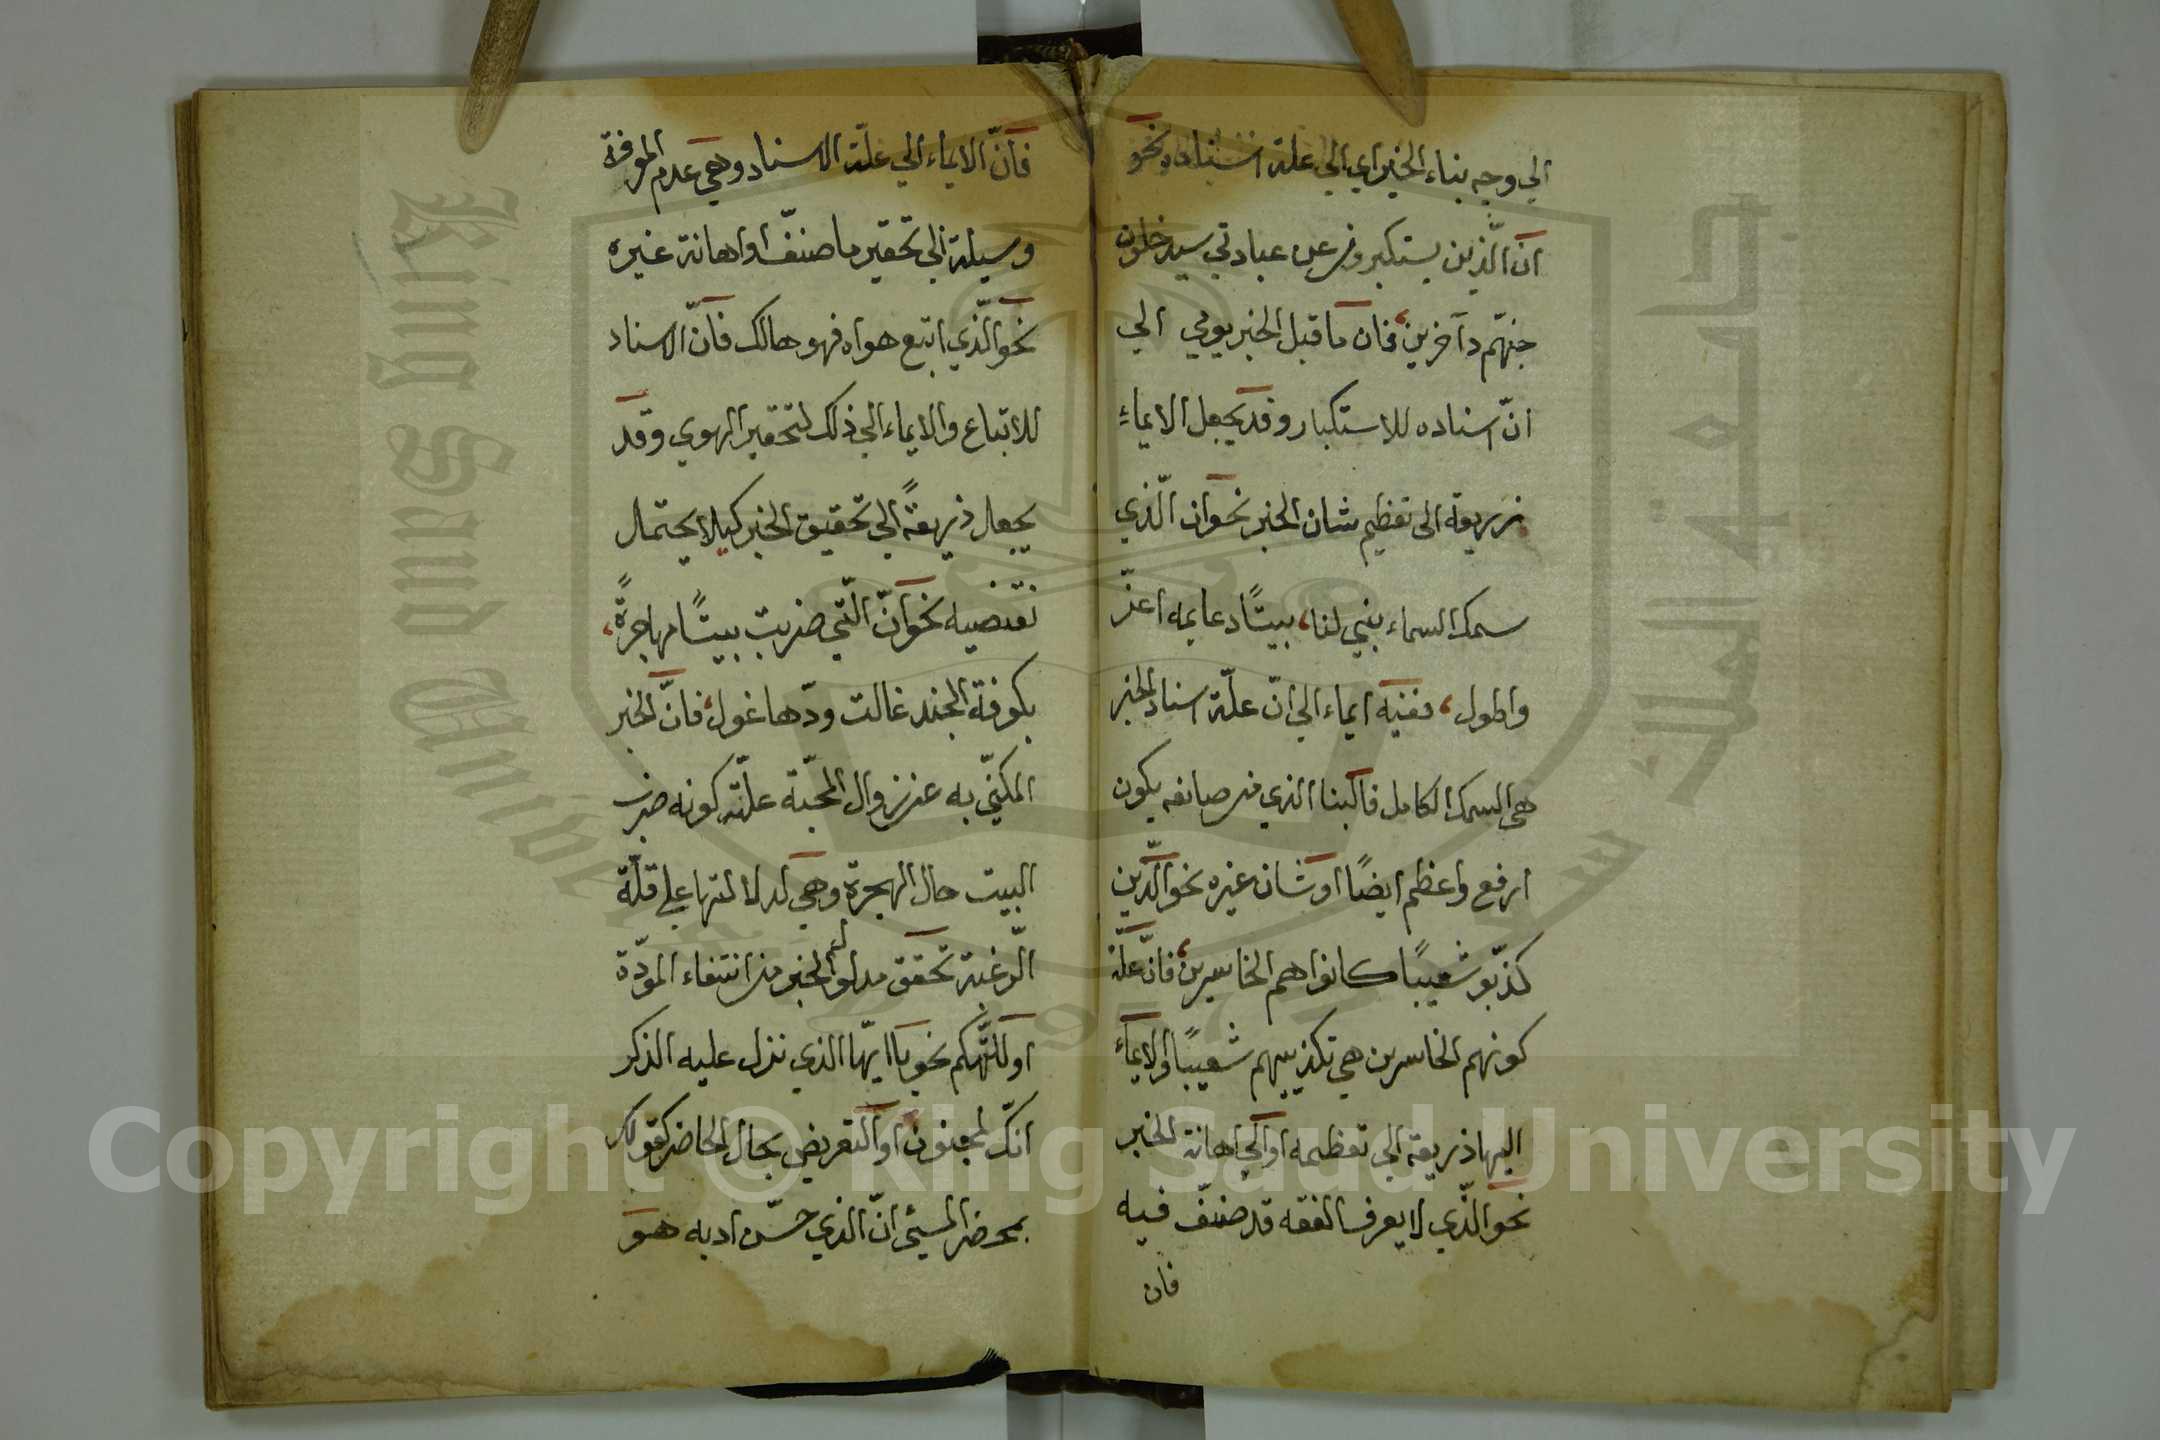 الي وجه بناء الخبر اي الي علة اسناده نحو
انّ الّذين يستكبرون عن عبادتي سيدخلون
جنهّم داخرين، فان ما قبل الخبر يومي الي
انّ اسناده للاستكبار وقد يجعل الايماء
ذريعة الى تعظيم شان الخبر نحو ان الّذي
سمك السماء بني لنا، بيتًا دعايمه اعزّ
واطول، ففيه ايماء الي انّ علّة اسناد الخبر
هي السمك الكامل فالبنا الذي من صانعه يكون
ارفع واعظم ايضًا او شان غيره نحو الّذين
كذّبو شعيبًا كانوا هم الخاسرين، فانّ علّة
كونهم الخاسرين هي تكذيبهم شعيبًا والايماء
اليها ذريعة الي تعظيمه او الي اهانة الخبر
نحو الّذي لا يعرف الفقه قد صنّف فيه
فان
فانّ الايماء الي علّة الاسناد وهي عدم المعرفة
وسيلة الي تحقير ما صنّف او اهانة غيره
نحو الّذي اتبع هواه فهو هالك فانّ الاسناد
للاتباع والايماء الي ذلك لتحقير الهوي وقد
يجعل ذريعةً الي تحقيق الخبر كيلا يحتمل
نقتضيه نحو انّ الّتي ضربت بيتًا مهاجرةً،
بكوفة الجند غالت ودّها غول، فانّ الخبر
المكنّي به عن زوال المحبّة علّته كونه ضرب
البيت حال الهجرة وهي لدلالتها علي قلّة
الّرغبة تحقق مدلول الخبر من انتفاء المودّة
او للتّهكم نحو يا ايّها الذي نزل عليه الذكر
انكّ لمجنون، او التعريض بحال الحاضر كقولك
بمحضر المسيئ انّ الذي حسّن ادبه هو
Copyright © King Saud University